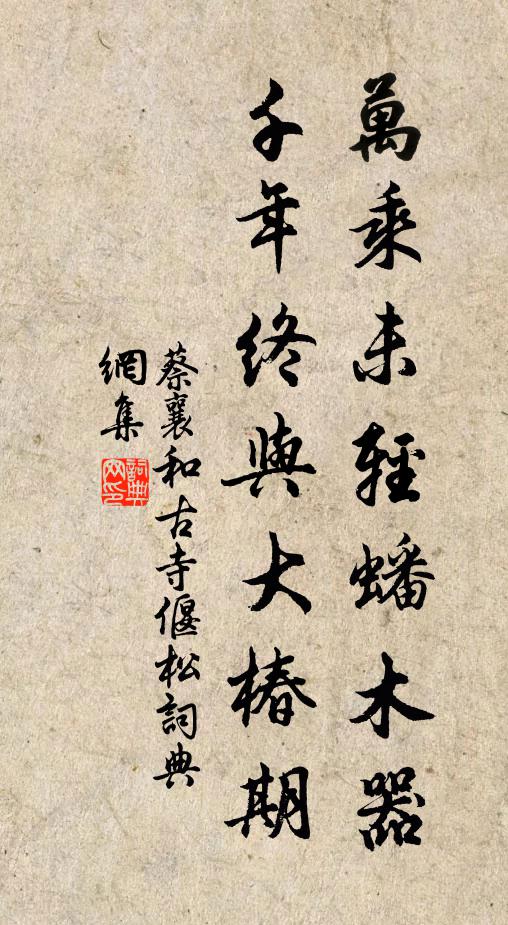 萬乘未輕蟠木器
千年終與大椿期
蔡襄和古寺偃松詞典
網集
詞典網印